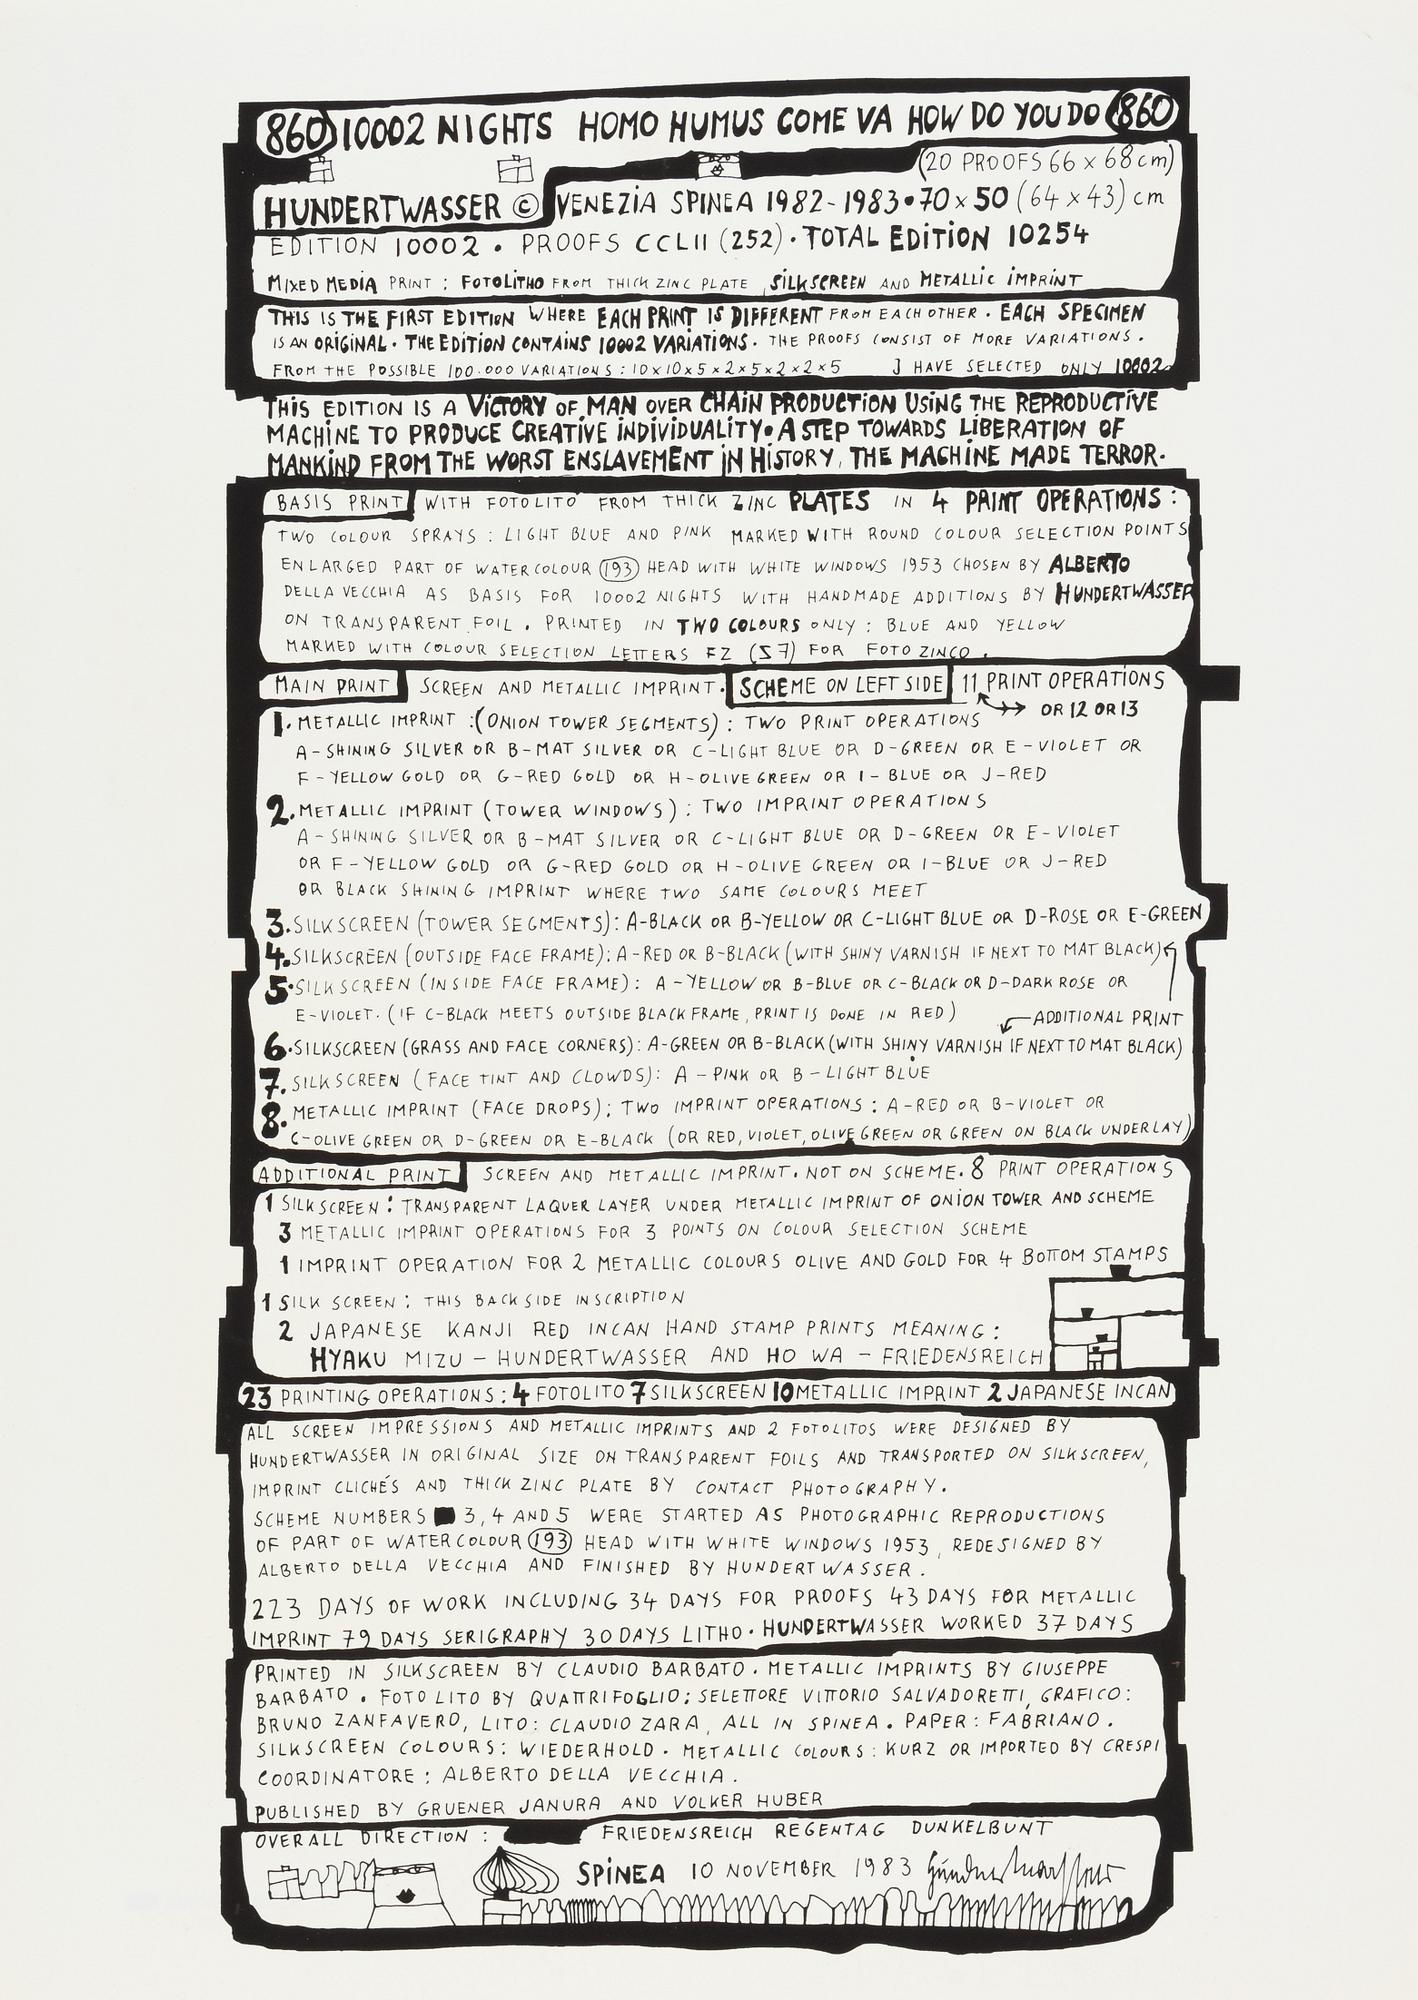 860 10002 NIGHTS HOMO HUMUS COME VA HOW DO YOU DO 860
(20 PROOFS 66 x 68 cm)
HUNDERTWASSER © VENEZIA SPINEA 1982-1983 • 70 x 50 (64 x 43) cm
EDITION 10002 • PROOFS CCLII (252) • TOTAL EDITION 10254
MIXED MEDIA PRINT : FOTOLITHO FROM THICK ZINC PLATE, SILKSCREEN AND METALLIC IMPRINT
THIS IS THE FIRST EDITION WHERE EACH PRINT IS DIFFERENT FROM EACH OTHER • EACH SPECIMEN
IS AN ORIGINAL • THE EDITION CONTAINS 10002 VARIATIONS. THE PROOFS CONSIST OF MORE VARIATIONS.
FROM THE POSSIBLE 100.000 VARIATIONS : 10x10x5x2x5x2x2x5 I HAVE SELECTED ONLY 10002
THIS EDITION IS A VICTORY OF MAN OVER CHAIN PRODUCTION USING THE REPRODUCTIVE
MACHINE TO PRODUCE CREATIVE INDIVIDUALITY • A STEP TOWARDS LIBERATION OF
MANKIND FROM THE WORST ENSLAVEMENT IN HISTORY, THE MACHINE MADE TERROR.
BASIS PRINT WITH FOTOLITO FROM THICK ZINC PLATES IN 4 PRINT OPERATIONS :
TWO COLOUR SPRAYS : LIGHT BLUE AND PINK MARKED WITH ROUND COLOUR SELECTION POINTS
ENLARGED PART OF WATERCOLOUR (193) HEAD WITH WHITE WINDOWS 1953 CHOSEN BY ALBERTO
DELLA VECCHIA AS BASIS FOR 10002 NIGHTS WITH HANDMADE ADDITIONS BY HUNDERTWASSER
ON TRANSPARENT FOIL. PRINTED IN TWO COLOURS ONLY : BLUE AND YELLOW
MARKED WITH COLOUR SELECTION LETTERS FZ (S7) FOR FOTO ZINCO.
MAIN PRINT SCREEN AND METALLIC IMPRINT. SCHEME ON LEFT SIDE 11 PRINT OPERATIONS
OR 12 OR 13
1. METALLIC IMPRINT : (ONION TOWER SEGMENTS) : TWO PRINT OPERATIONS
A-SHINING SILVER OR B-MAT SILVER OR C-LIGHT BLUE OR D-GREEN OR E-VIOLET OR
F-YELLOW GOLD OR G-RED GOLD OR H-OLIVE GREEN OR I-BLUE OR J-RED
2. METALLIC IMPRINT (TOWER WINDOWS) : TWO IMPRINT OPERATIONS
A-SHINING SILVER OR B-MAT SILVER OR C-LIGHT BLUE OR D-GREEN OR E-VIOLET
OR F-YELLOW GOLD OR G-RED GOLD OR H-OLIVE GREEN OR I-BLUE OR J-RED
OR BLACK SHINING IMPRINT WHERE TWO SAME COLOURS MEET
3. SILKSCREEN (TOWER SEGMENTS) : A-BLACK OR B-YELLOW OR C-LIGHT BLUE OR D-ROSE OR E-GREEN
4. SILKSCREEN (OUTSIDE FACE FRAME) : A-RED OR B-BLACK (WITH SHINY VARNISH IF NEXT TO MAT BLACK)
5. SILKSCREEN (INSIDE FACE FRAME) : A-YELLOW OR B-BLUE OR C-BLACK OR D-DARK ROSE OR
E-VIOLET. (IF C-BLACK MEETS OUTSIDE BLACK FRAME, PRINT IS DONE IN RED) ADDITIONAL PRINT
6. SILKSCREEN (GRASS AND FACE CORNERS) : A-GREEN OR B-BLACK (WITH SHINY VARNISH IF NEXT TO MAT BLACK)
7. SILKSCREEN (FACE TINT AND CLOWDS) : A-PINK OR B-LIGHT BLUE
8. METALLIC IMPRINT (FACE DROPS) ; TWO IMPRINT OPERATIONS : A-RED OR B-VIOLET OR
C-OLIVE GREEN OR D-GREEN OR E-BLACK (OR RED, VIOLET, OLIVE GREEN OR GREEN ON BLACK UNDERLAY)
ADDITIONAL PRINT SCREEN AND METALLIC IMPRINT. NOT ON SCHEME. 8 PRINT OPERATIONS
1 SILKSCREEN : TRANSPARENT LAQUER LAYER UNDER METALLIC IMPRINT OF ONION TOWER AND SCHEME
3 METALLIC IMPRINT OPERATIONS FOR 3 POINTS ON COLOUR SELECTION SCHEME
1 IMPRINT OPERATION FOR 2 METALLIC COLOURS OLIVE AND GOLD FOR 4 BOTTOM STAMPS
1 SILK SCREEN : THIS BACKSIDE INSCRIPTION
2 JAPANESE KANJI RED INCAN HAND STAMP PRINTS MEANING :
HYAKU MIZU - HUNDERTWASSER AND HO WA - FRIEDENSREICH
23 PRINTING OPERATIONS : 4 FOTOLITO 7 SILKSCREEN 10 METALLIC IMPRINT 2 JAPANESE INCAN
ALL SCREEN IMPRESSIONS AND METALLIC IMPRINTS AND 2 FOTOLITOS WERE DESIGNED BY
HUNDERTWASSER IN ORIGINAL SIZE ON TRANSPARENT FOILS AND TRANSPORTED ON SILKSCREEN,
IMPRINT CLICHÉS AND THICK ZINC PLATE BY CONTACT PHOTOGRAPHY.
SCHEME NUMBERS 3, 4 AND 5 WERE STARTED AS PHOTOGRAPHIC REPRODUCTIONS
OF PART OF WATERCOLOUR (193) HEAD WITH WHITE WINDOWS 1953, REDESIGNED BY
ALBERTO DELLA VECCHIA AND FINISHED BY HUNDERTWASSER.
223 DAYS OF WORK INCLUDING 34 DAYS FOR PROOFS 43 DAYS FOR METALLIC
IMPRINT 79 DAYS SERIGRAPHY 30 DAYS LITHO • HUNDERTWASSER WORKED 37 DAYS
PRINTED IN SILKSCREEN BY CLAUDIO BARBATO. METALLIC IMPRINTS BY GIUSEPPE
BARBATO. FOTOLITO BY QUATTRIFOGLIO; SELETTORE VITTORIO SALVADORETTI, GRAFICO:
BRUNO ZANFAVERO, LITO: CLAUDIO ZARA, ALL IN SPINEA. PAPER: FABRIANO.
SILKSCREEN COLOURS: WIEDERHOLD. METALLIC COLOURS: KURZ OR IMPORTED BY CRESPI
COORDINATORE : ALBERTO DELLA VECCHIA.
PUBLISHED BY GRUENER JANURA AND VOLKER HUBER
OVERALL DIRECTION : FRIEDENSREICH REGENTAG DUNKELBUNT
SPINEA 10 NOVEMBER 1983 Hundertwasser